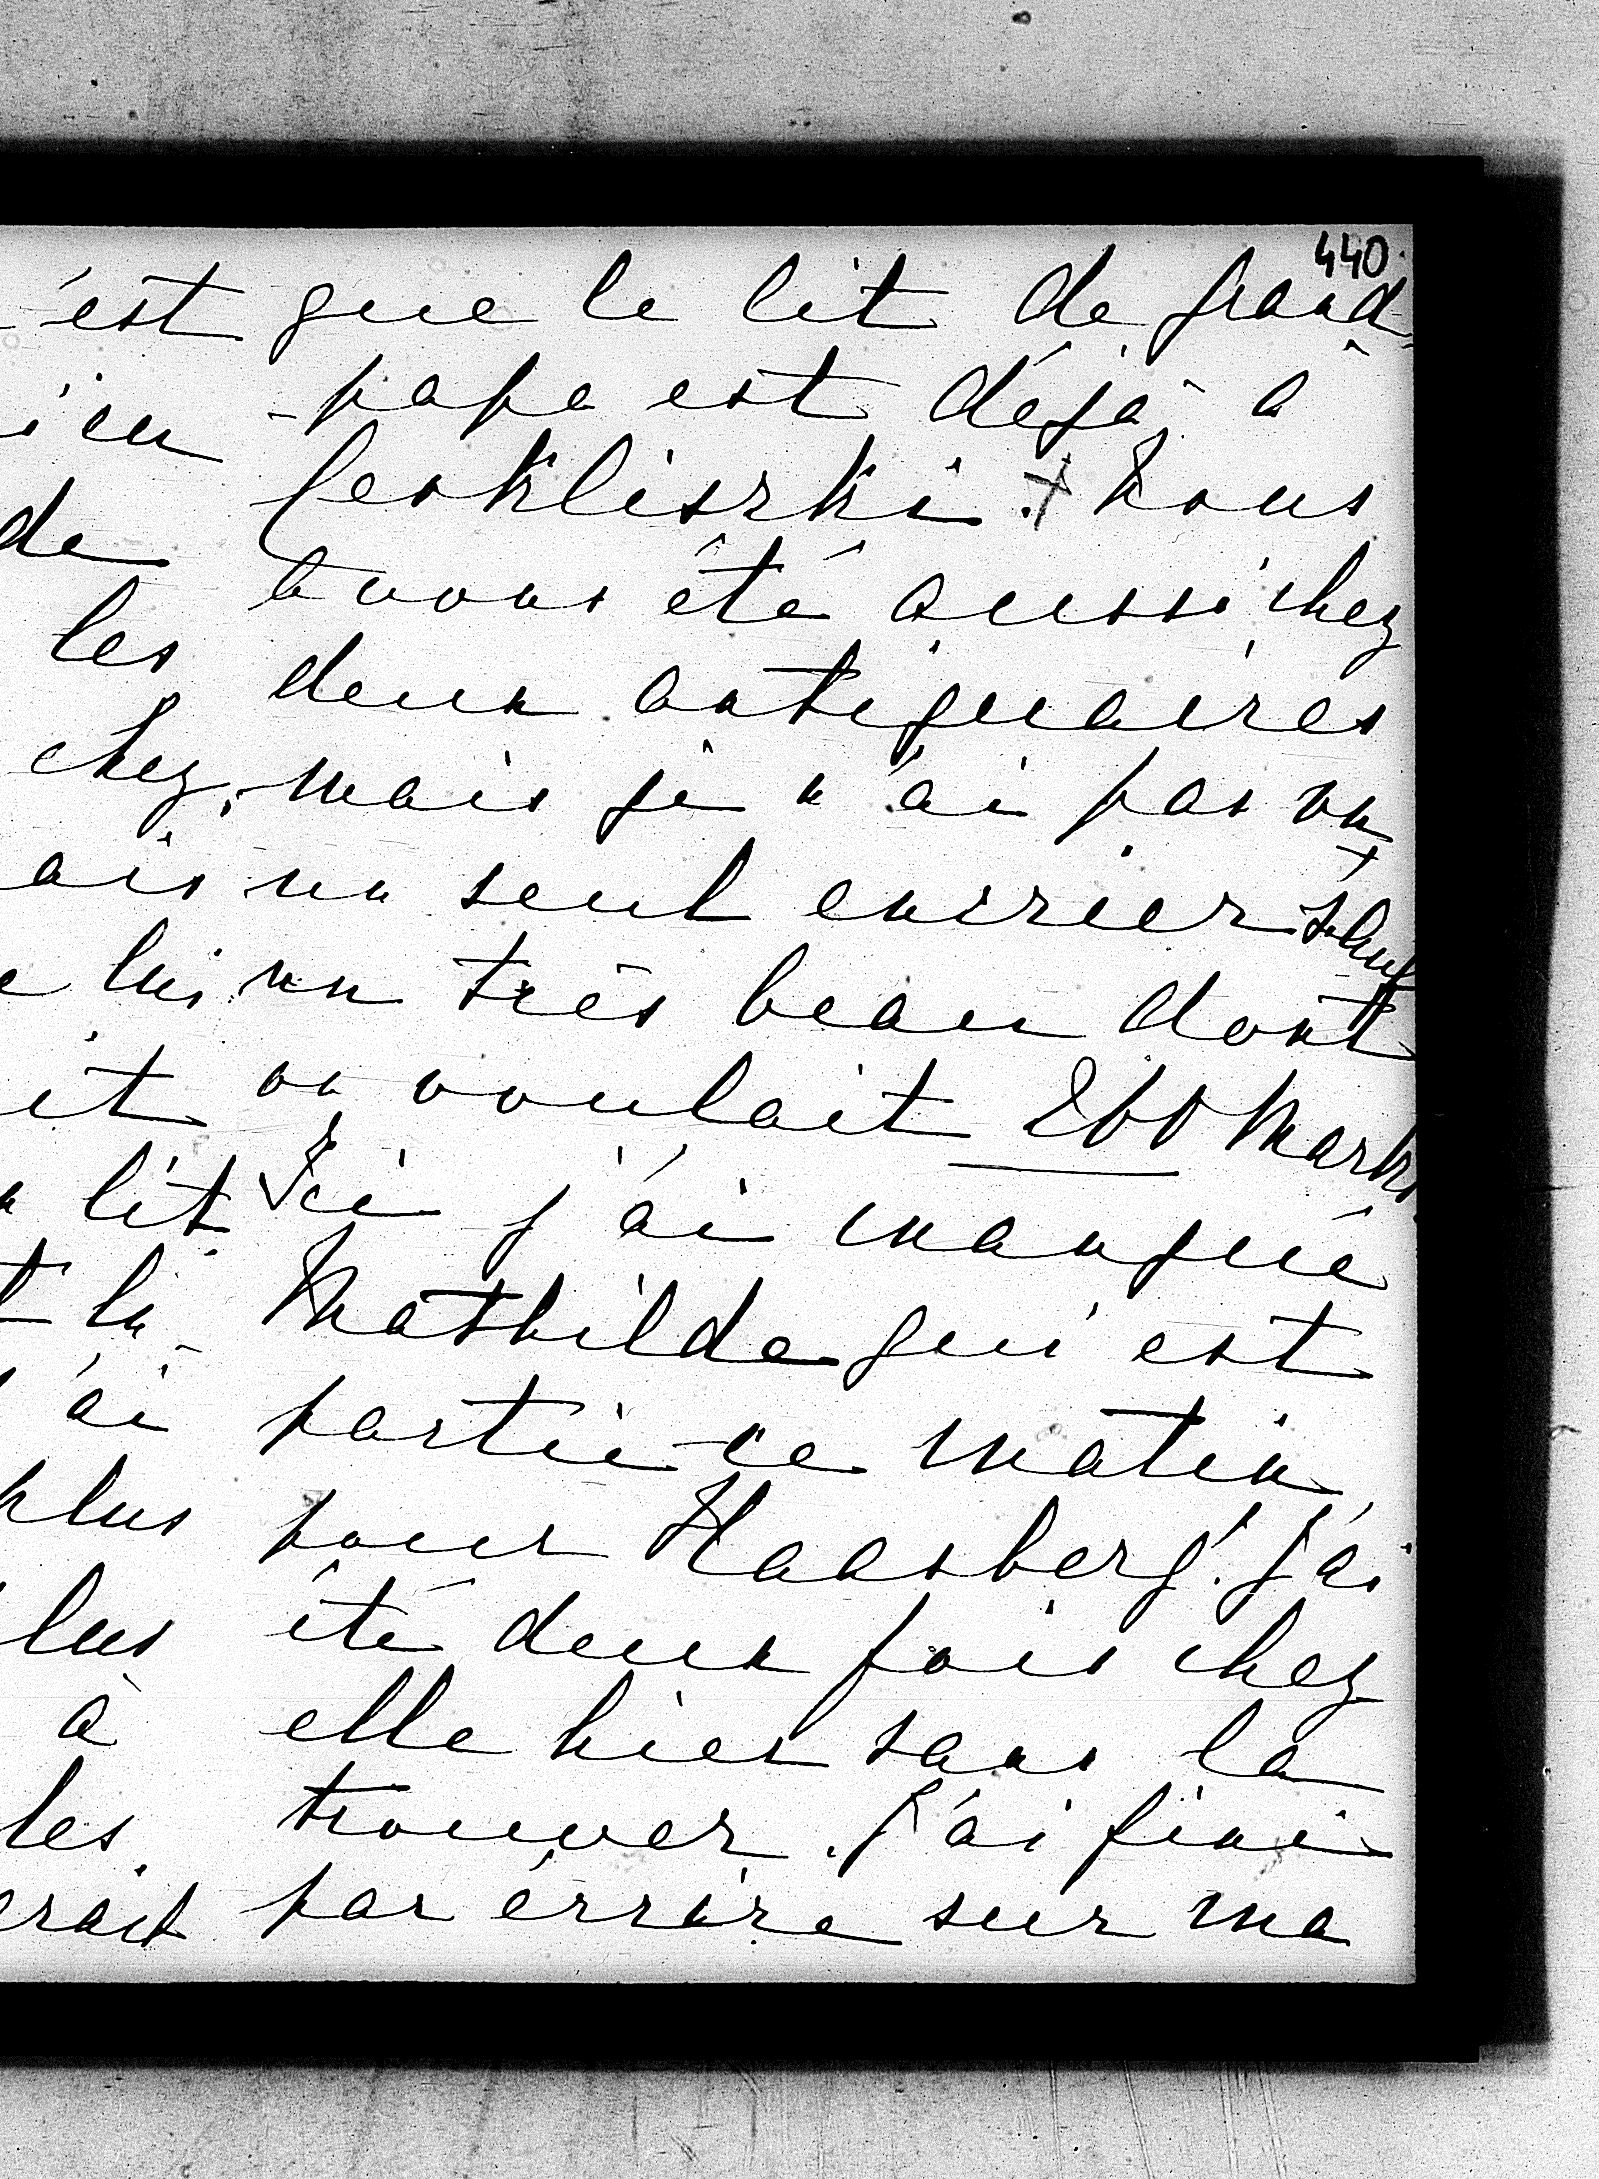 440
'est
ien
de
les
chez,
ais
lui
it
lit
la
'ai
plus
lus
à
les
erait
que le lit de grand
-papa est déjà à
Cerkliszki. + Nous
avons été aussi chez
deux antiquaires
mais je n'ai pas vu
un seul encrier + sauf
un très beau dont
on voulait Marks
Ici j'ai manqué
Mathilde qui est
partie ce matin
pour Haasberg. J'ai
été deux fois chez
elle hier sans la
trouver. J'ai fini
par écrire sur ma